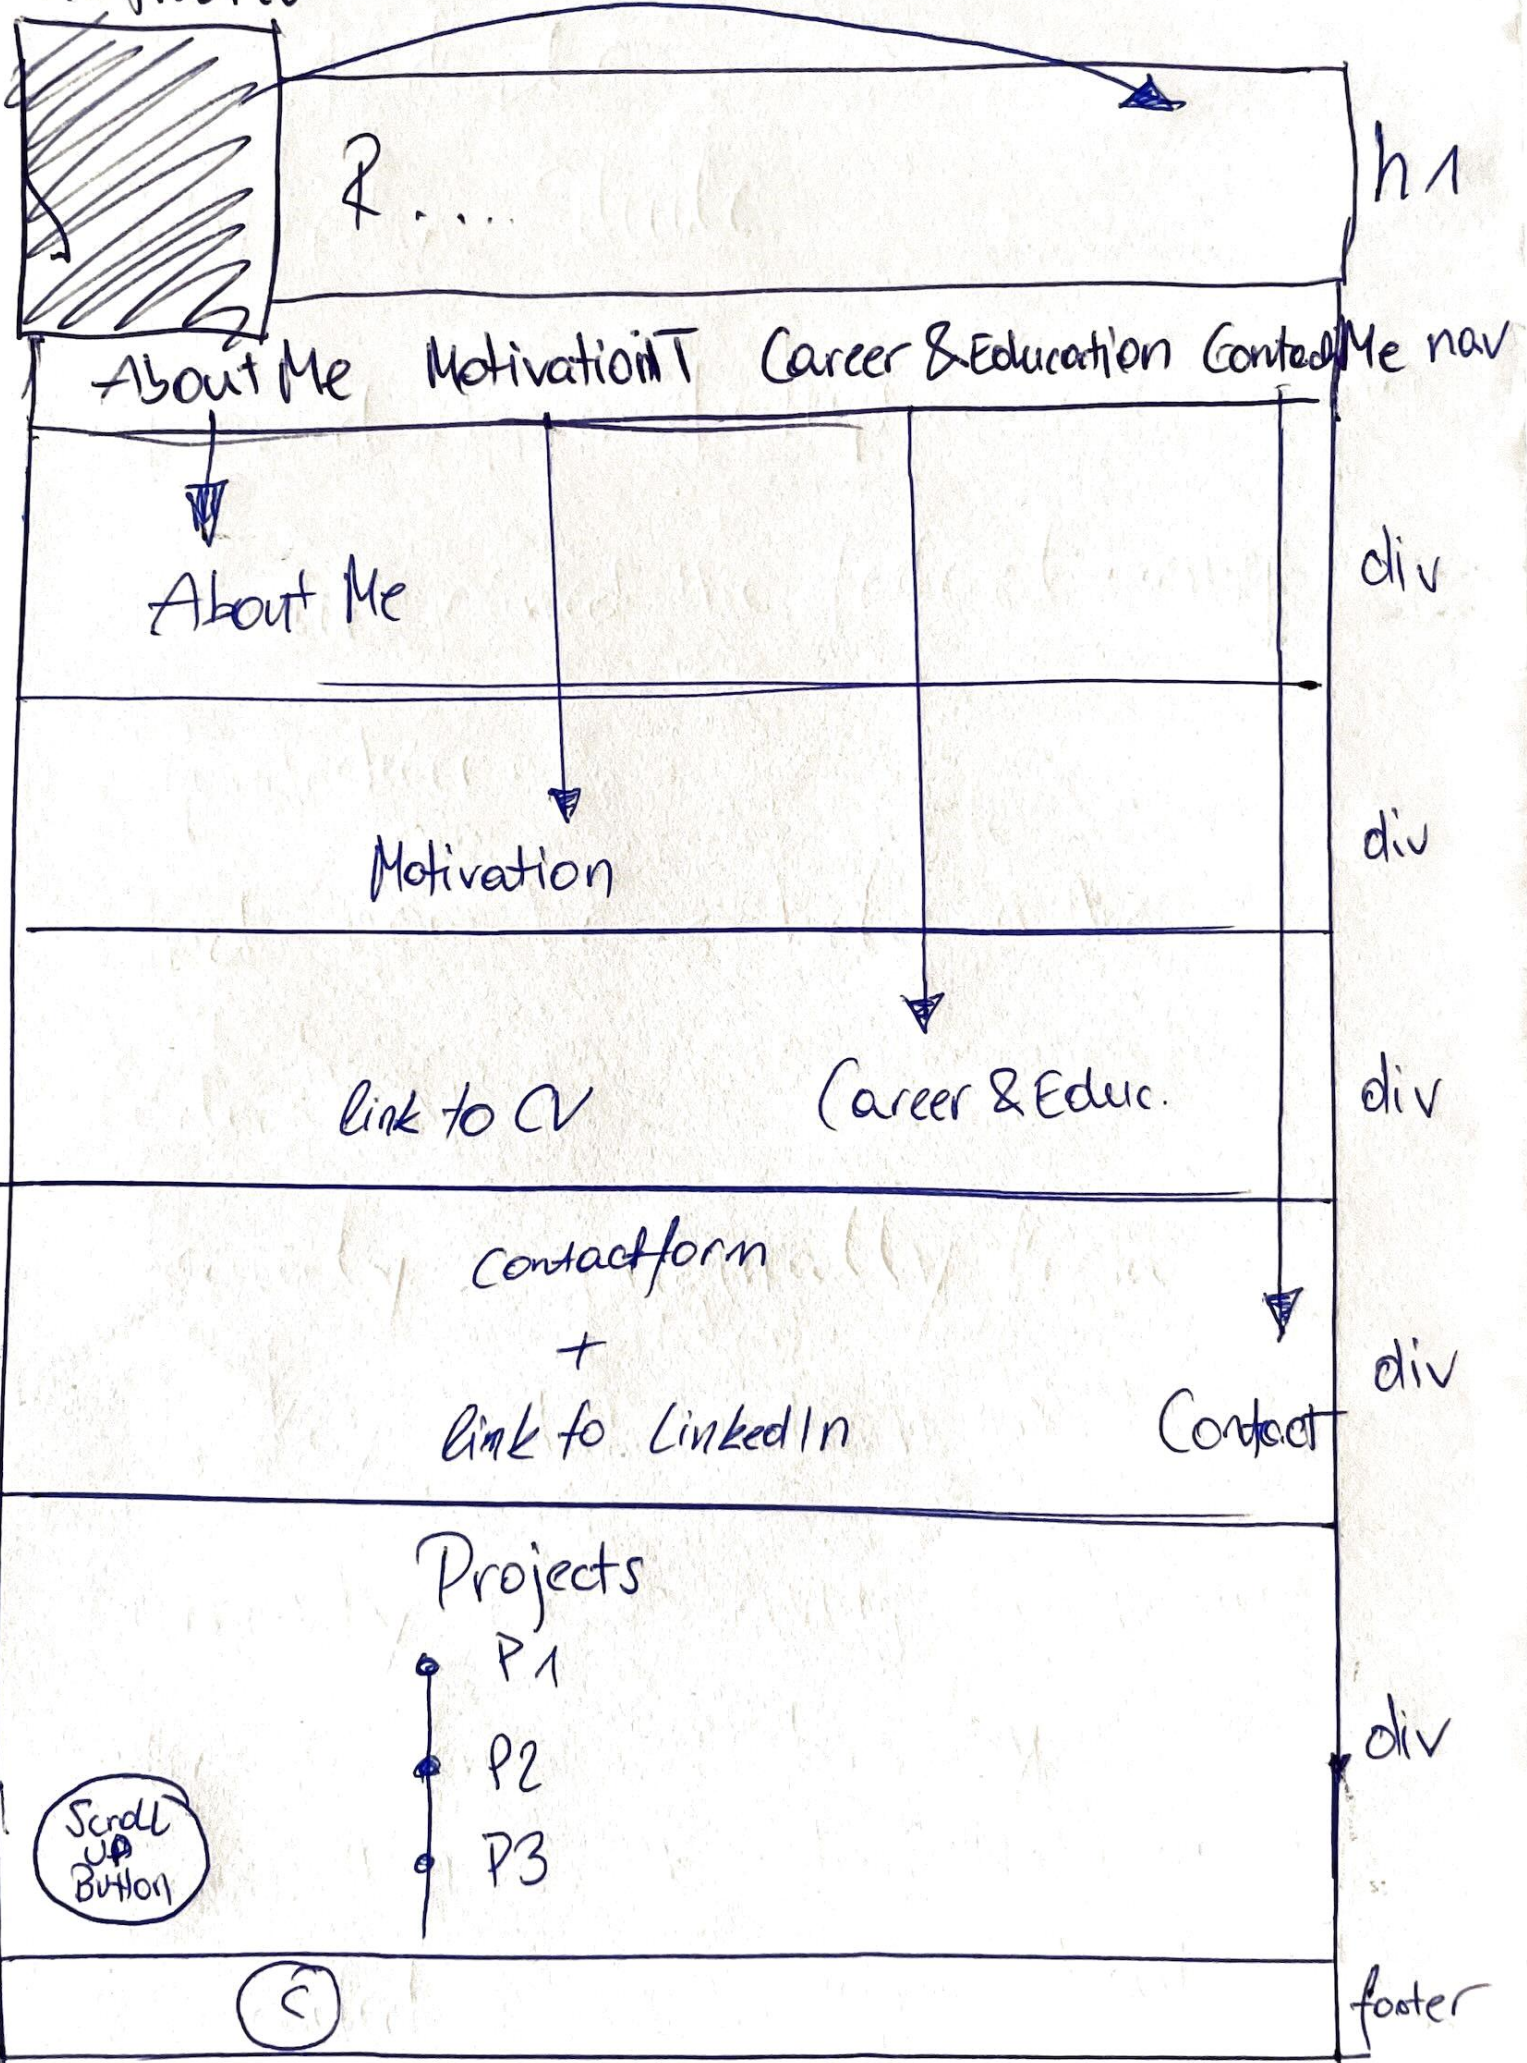 R....
h1
About Me MotivationIT Career & Education Contact Me nav
About Me
div
Motivation
div
link to CV Career & Educ.
div
contactform
+
link to LinkedIn
Contact
div
Projects
P1
P2
P3
div
Scroll
UP
Button
C
footer